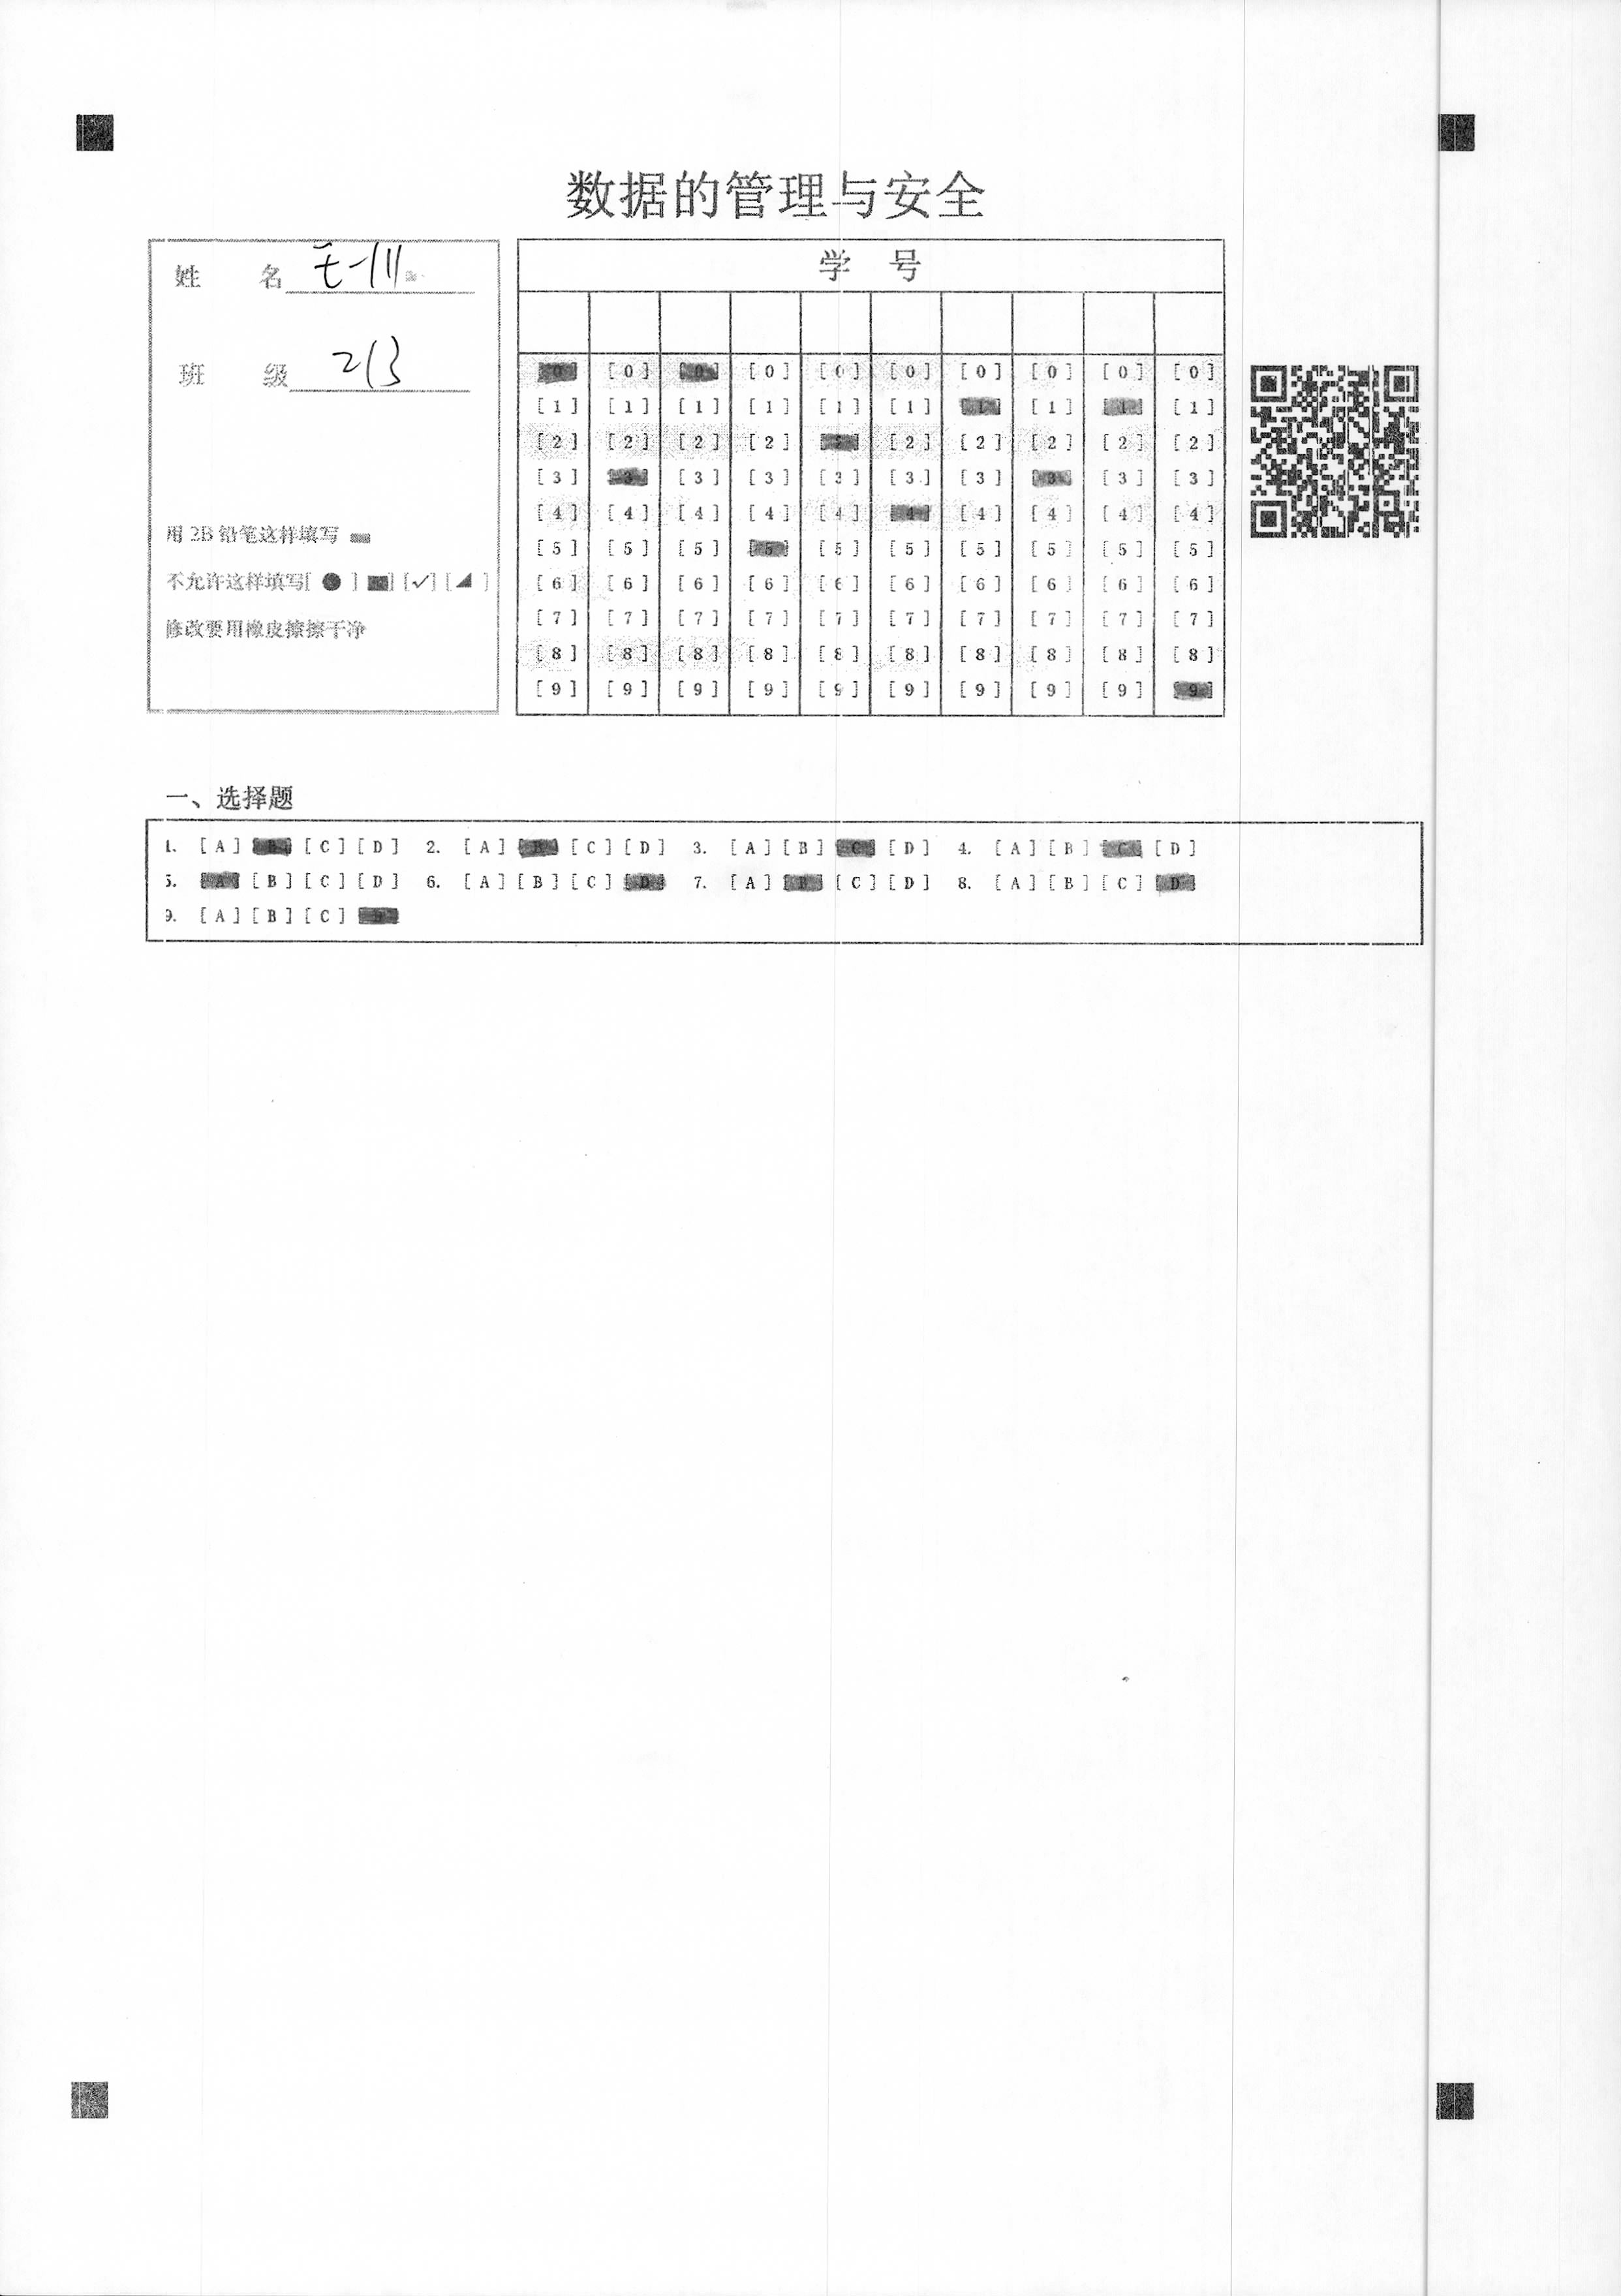 数据的管理与安全
姓 名
班 级 213
用 2B 铅笔这样填写
不允许这样填写[ ● ] ■] [✓] [◢ ]
修改要用橡皮擦擦干净
学 号
[0] [0] [0] [0] [0] [0] [0] [0] [0] [0]
[1] [1] [1] [1] [1] [1] [1] [1] [1] [1]
[2] [2] [2] [2] [2] [2] [2] [2] [2] [2]
[3] [3] [3] [3] [3] [3] [3] [3] [3] [3]
[4] [4] [4] [4] [4] [4] [4] [4] [4] [4]
[5] [5] [5] [5] [5] [5] [5] [5] [5] [5]
[6] [6] [6] [6] [6] [6] [6] [6] [6] [6]
[7] [7] [7] [7] [7] [7] [7] [7] [7] [7]
[8] [8] [8] [8] [8] [8] [8] [8] [8] [8]
[9] [9] [9] [9] [9] [9] [9] [9] [9] [9]
一、选择题
1. [A] [B] [C] [D] 2. [A] [B] [C] [D] 3. [A] [B] [C] [D] 4. [A] [B] [C] [D]
5. [A] [B] [C] [D] 6. [A] [B] [C] [D] 7. [A] [B] [C] [D] 8. [A] [B] [C] [D]
9. [A] [B] [C] [D]